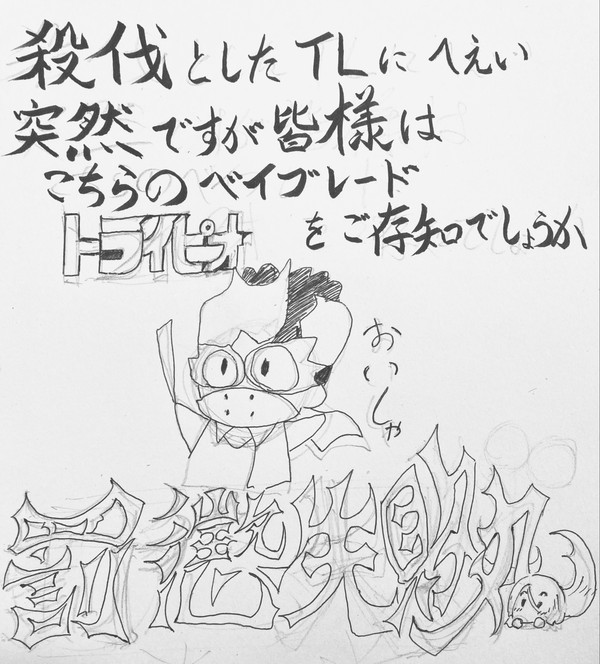 殺伐としたTLにへえい
突然ですが皆様は
こちらのベイブレード
をご存知でしょうか
トライピオ
おいしゃ